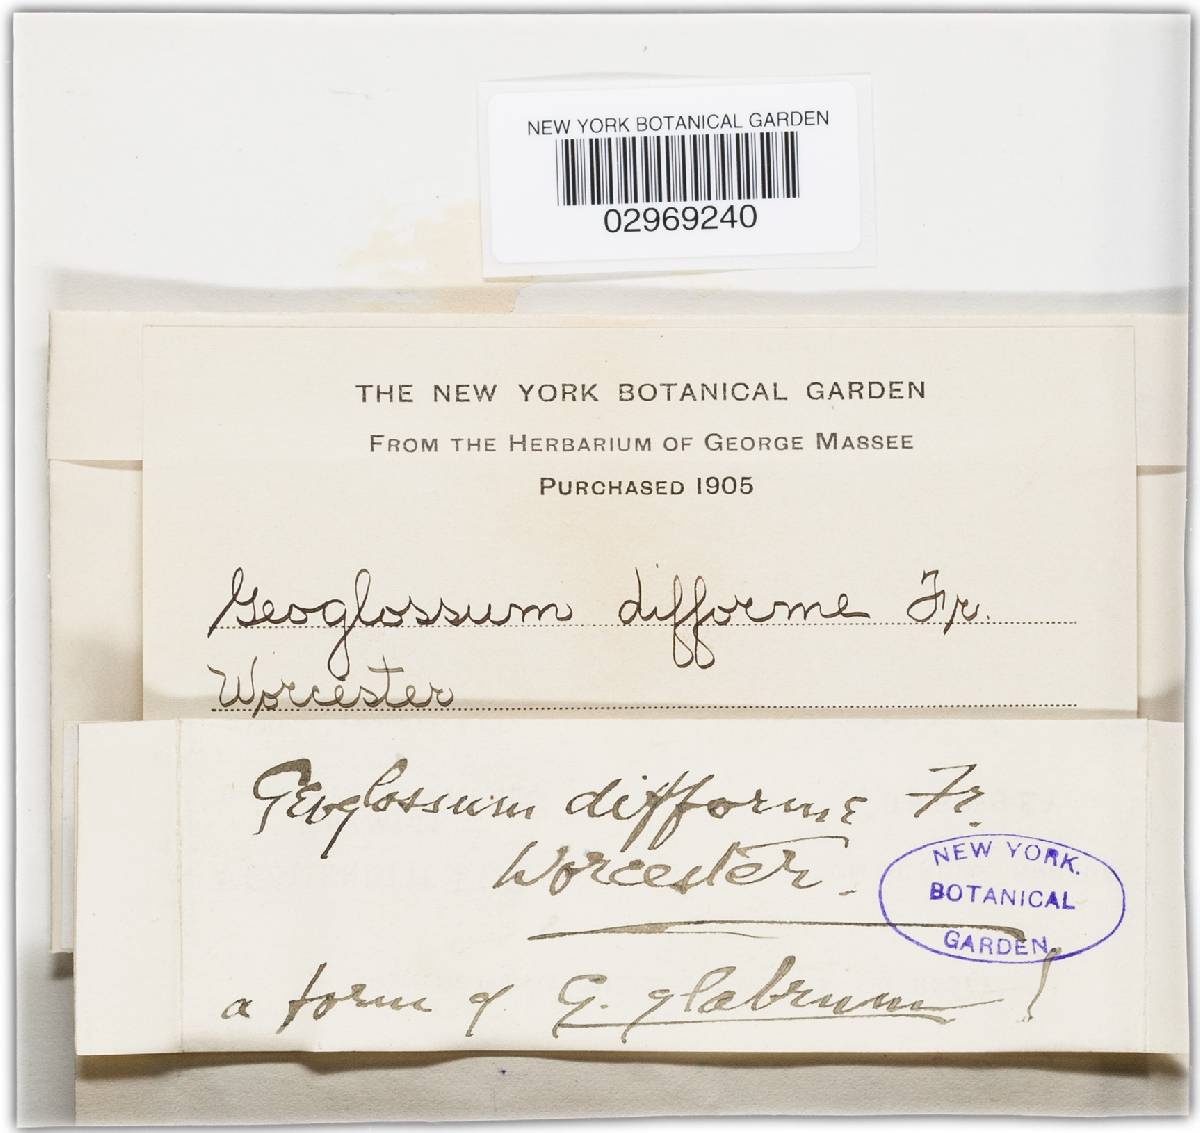 NEW YORK BOTANICAL GARDEN
02969240
THE NEW YORK BOTANICAL GARDEN
FROM THE HERBARIUM OF GEORGE MASSEE
PURCHASED 1905
Geoglossum difforme Fr.
Worcester
Geoglossum difforme Fr.
Worcester.
NEW YORK.
BOTANICAL
GARDEN.
a form of G. glabrum!